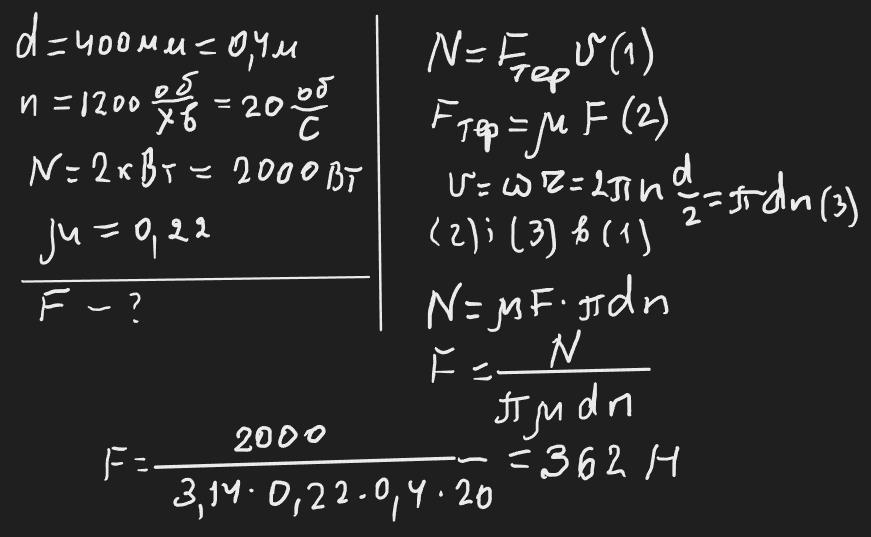 d = 400 мм = 0,4 м
n = 1200 об/хв = 20 об/с
N = 2 кВт = 2000 Вт
μ = 0,22
F - ?
N = Fтер υ (1)
Fтер = μ F (2)
υ = ω r = 2πn d/2 = πdn (3)
(2) і (3) в (1)
N = μF · πdn
F = N / πμdn
F = 2000 / 3,14 · 0,22 · 0,4 · 20 = 362 Н